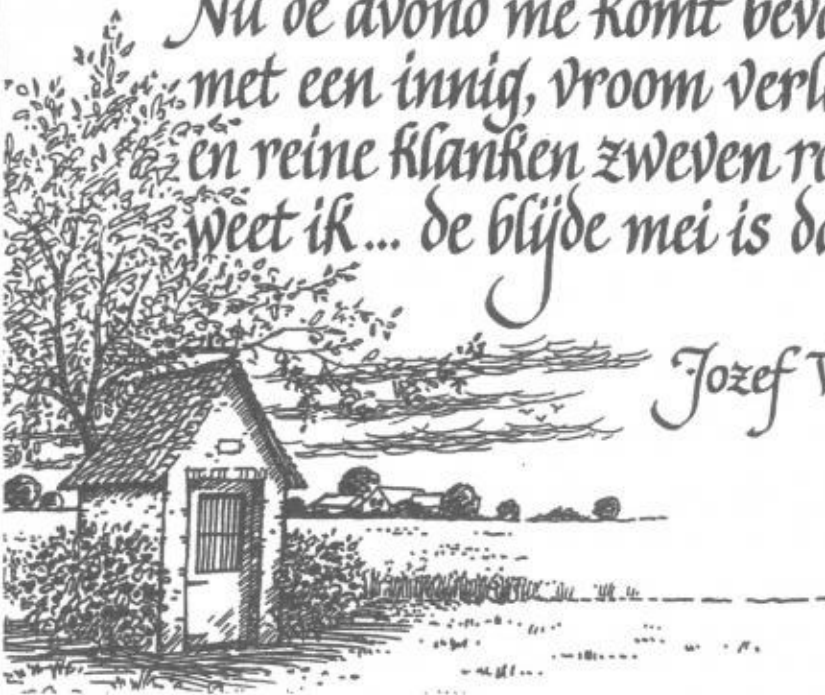 Nu de avond me komt
met een innig, vroom
en reine klanken zweven
weet ik... de blijde mei is
Jozef